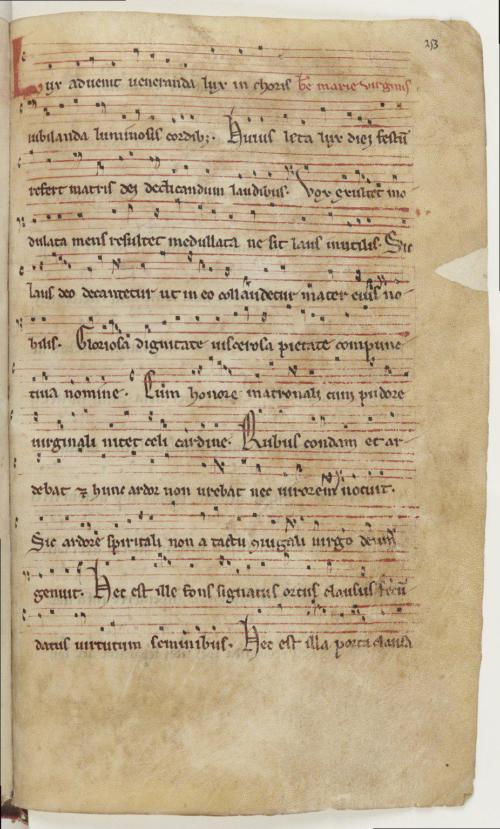 253
Lux advenit veneranda lux in choris be marie virginis
iubilanda luminosis cordib;. Huius leta lux diei festū
refert matris dei dedicandum laudibus. Vox exultet mo
dulata mens resultet medullata ne sit laus inutilis. Sic
laus deo decantetur ut in eo collaudetur mater eius no
bilis. Gloriosa dignitate viscerosa pietate compunc
tiva nomine. Cum honore matronali cum pudore
virginali nitet celi cardine. Rubus condam et ar
debat ⁊ hunc ardor non urebat nec virorem nocuit.
Sic ardore spiritali non a tactu coniugali virgo deum
genuit. Hec est ille fons signatus ortus clausus fecū
datus virtutum seminibus. Hec est illa porta clausa